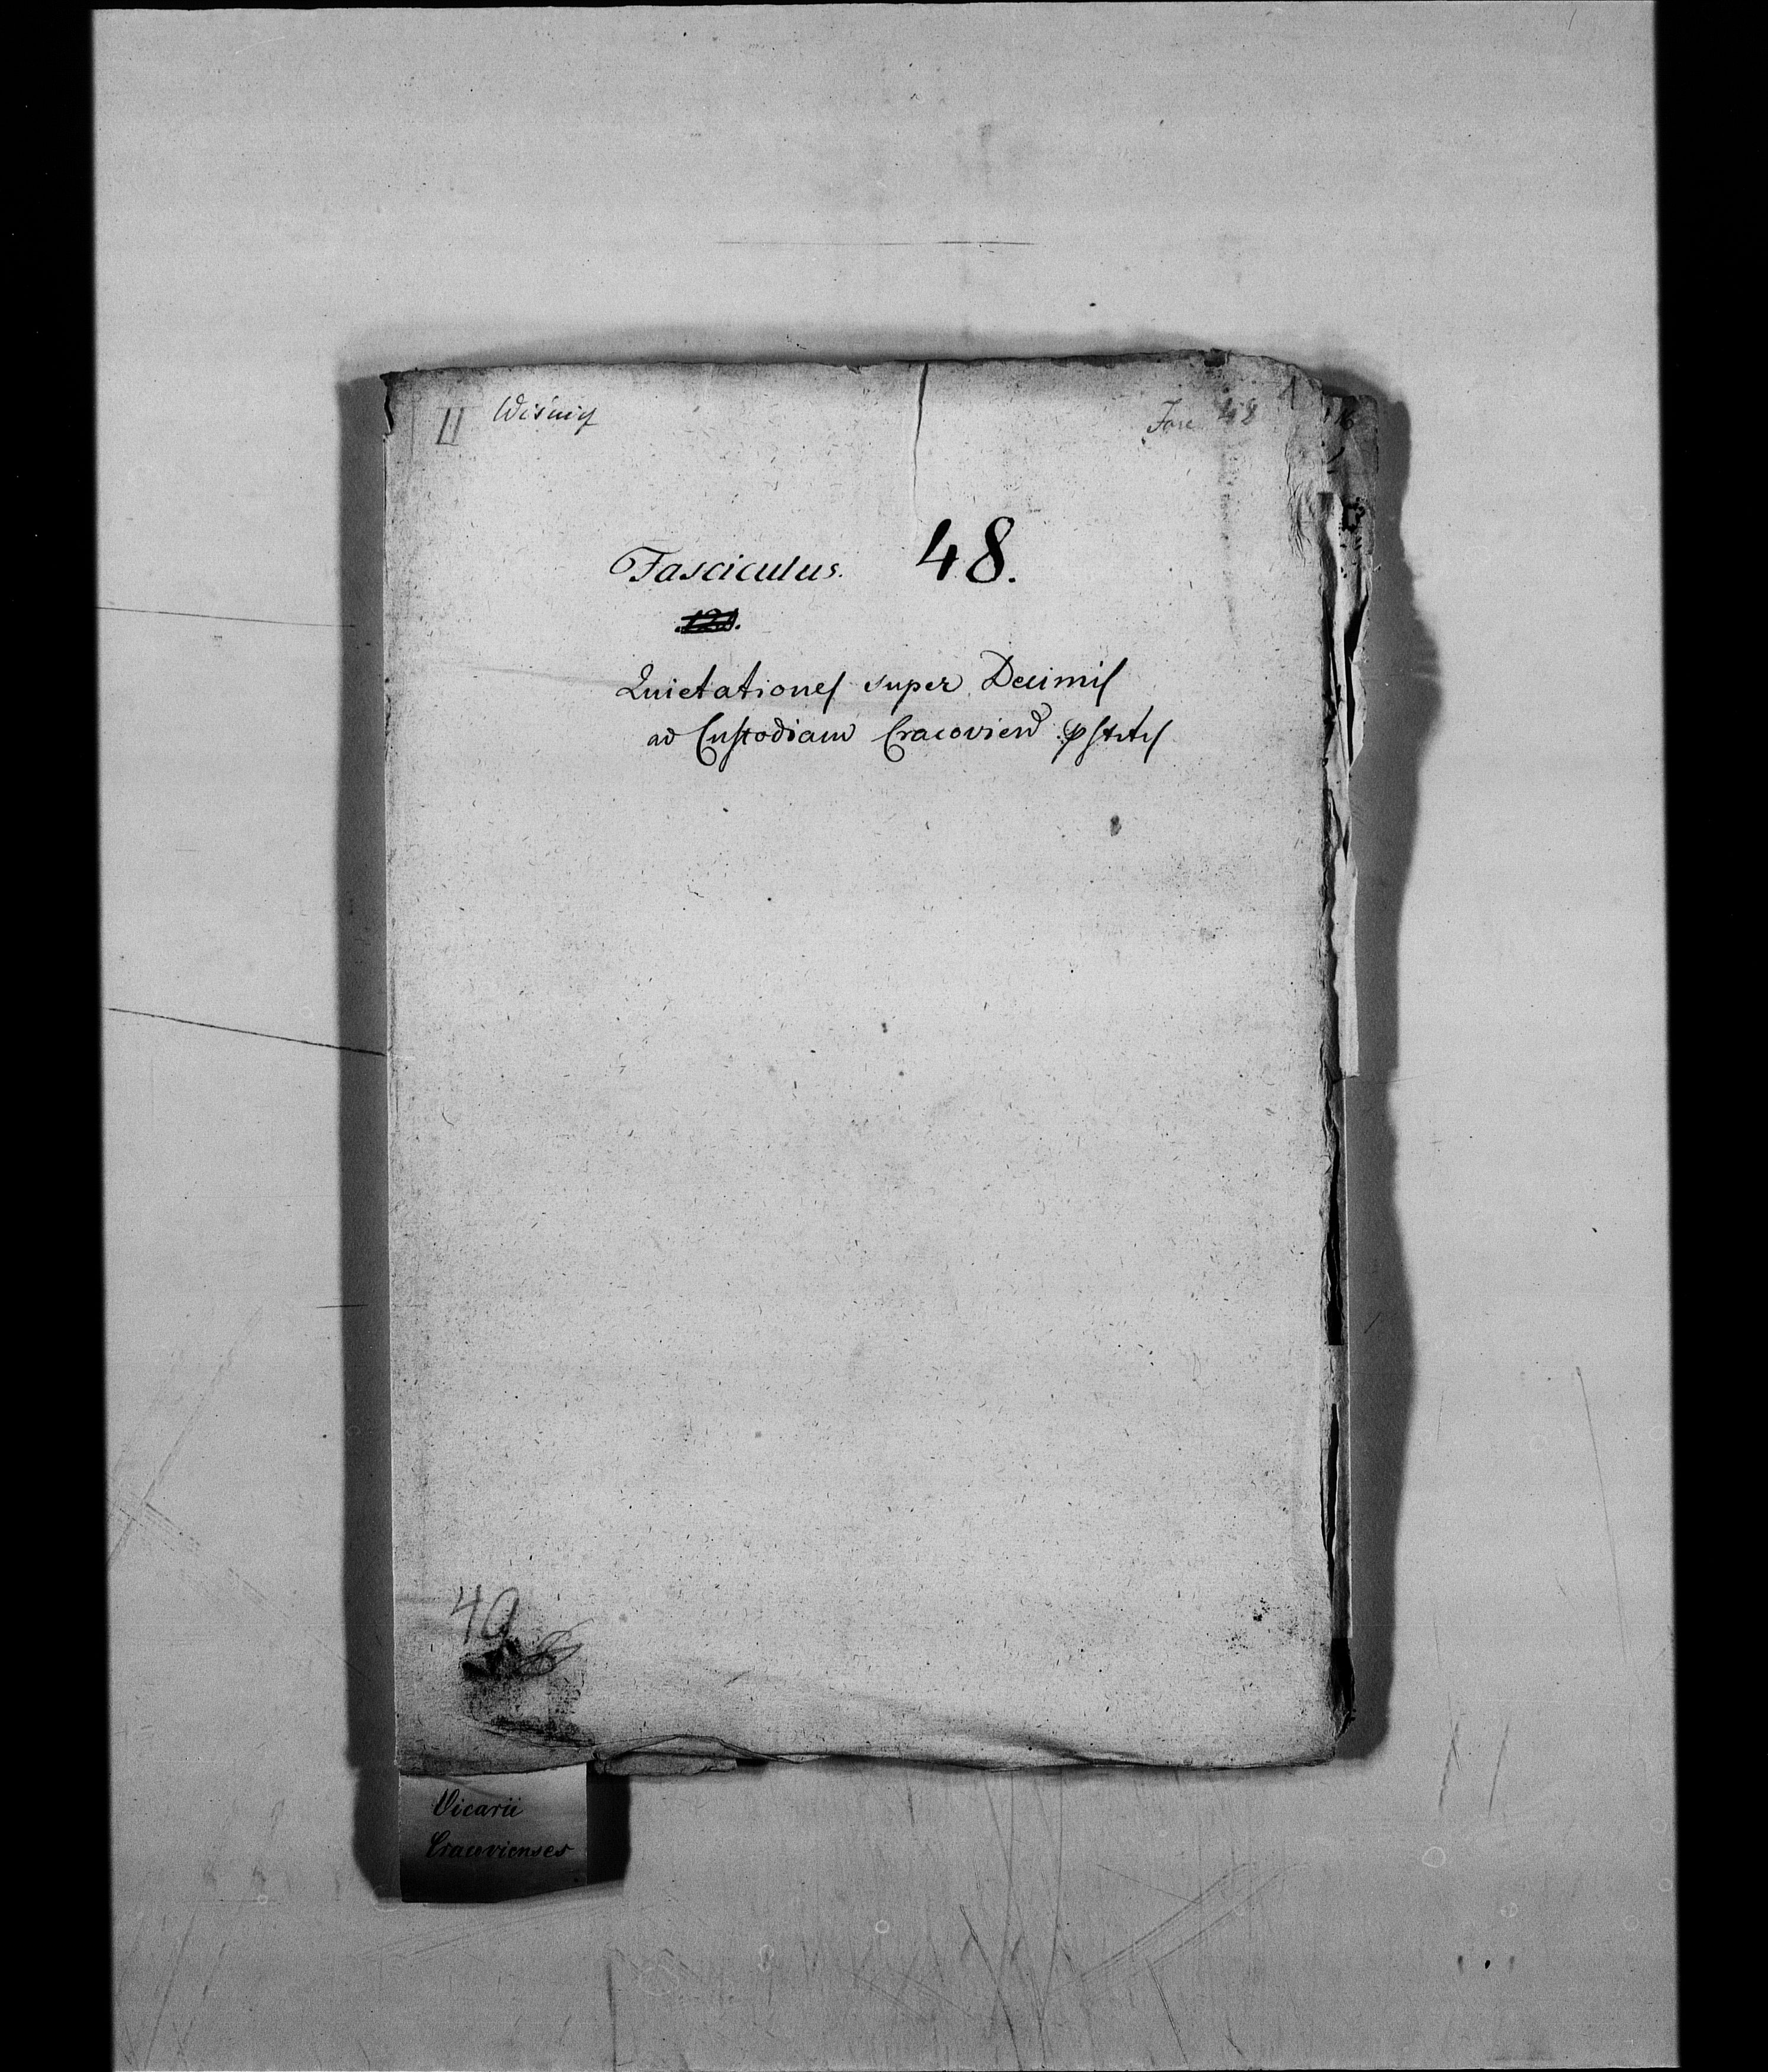 11 Wiśnicz
Fasc 48
Fasciculus. 48.
Quietationes super Decimis
ad Custodiam Cracovien
Vicarii
Cracovienses